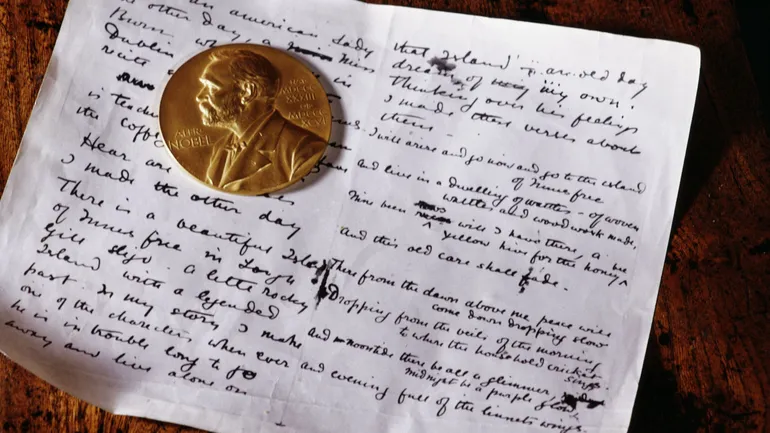 an american lady
the other day, a Miss
Burn
Dublin in
route
is teach
the coff
Hear are
I made the other day
There is a beautiful Island
of Innesfree in Lough
Gill Sligo. A little rocky
Island with a legended
past. In my story I make
one of the characters when ever
he is in trouble long to go
away and live alone on
ALFR
NOBEL
that Island - an old day
dream of my own.
Thinking over his feelings
I made these verses about
them -
I will arise and go now and go to the island
of Innesfree
and live in a dwelling of wattles - of woven
wattles and wood work made,
Nine been will I have there, a
yellow hive for the honey
And this old care shall fade.
There from the dawn above me peace will
come down dropping slow
Dropping from the veils of the morning
to where the household cricket
sings.
and noontide there be all a glimmer,
midnight be a purple glow
and evening full of the linnets wings.